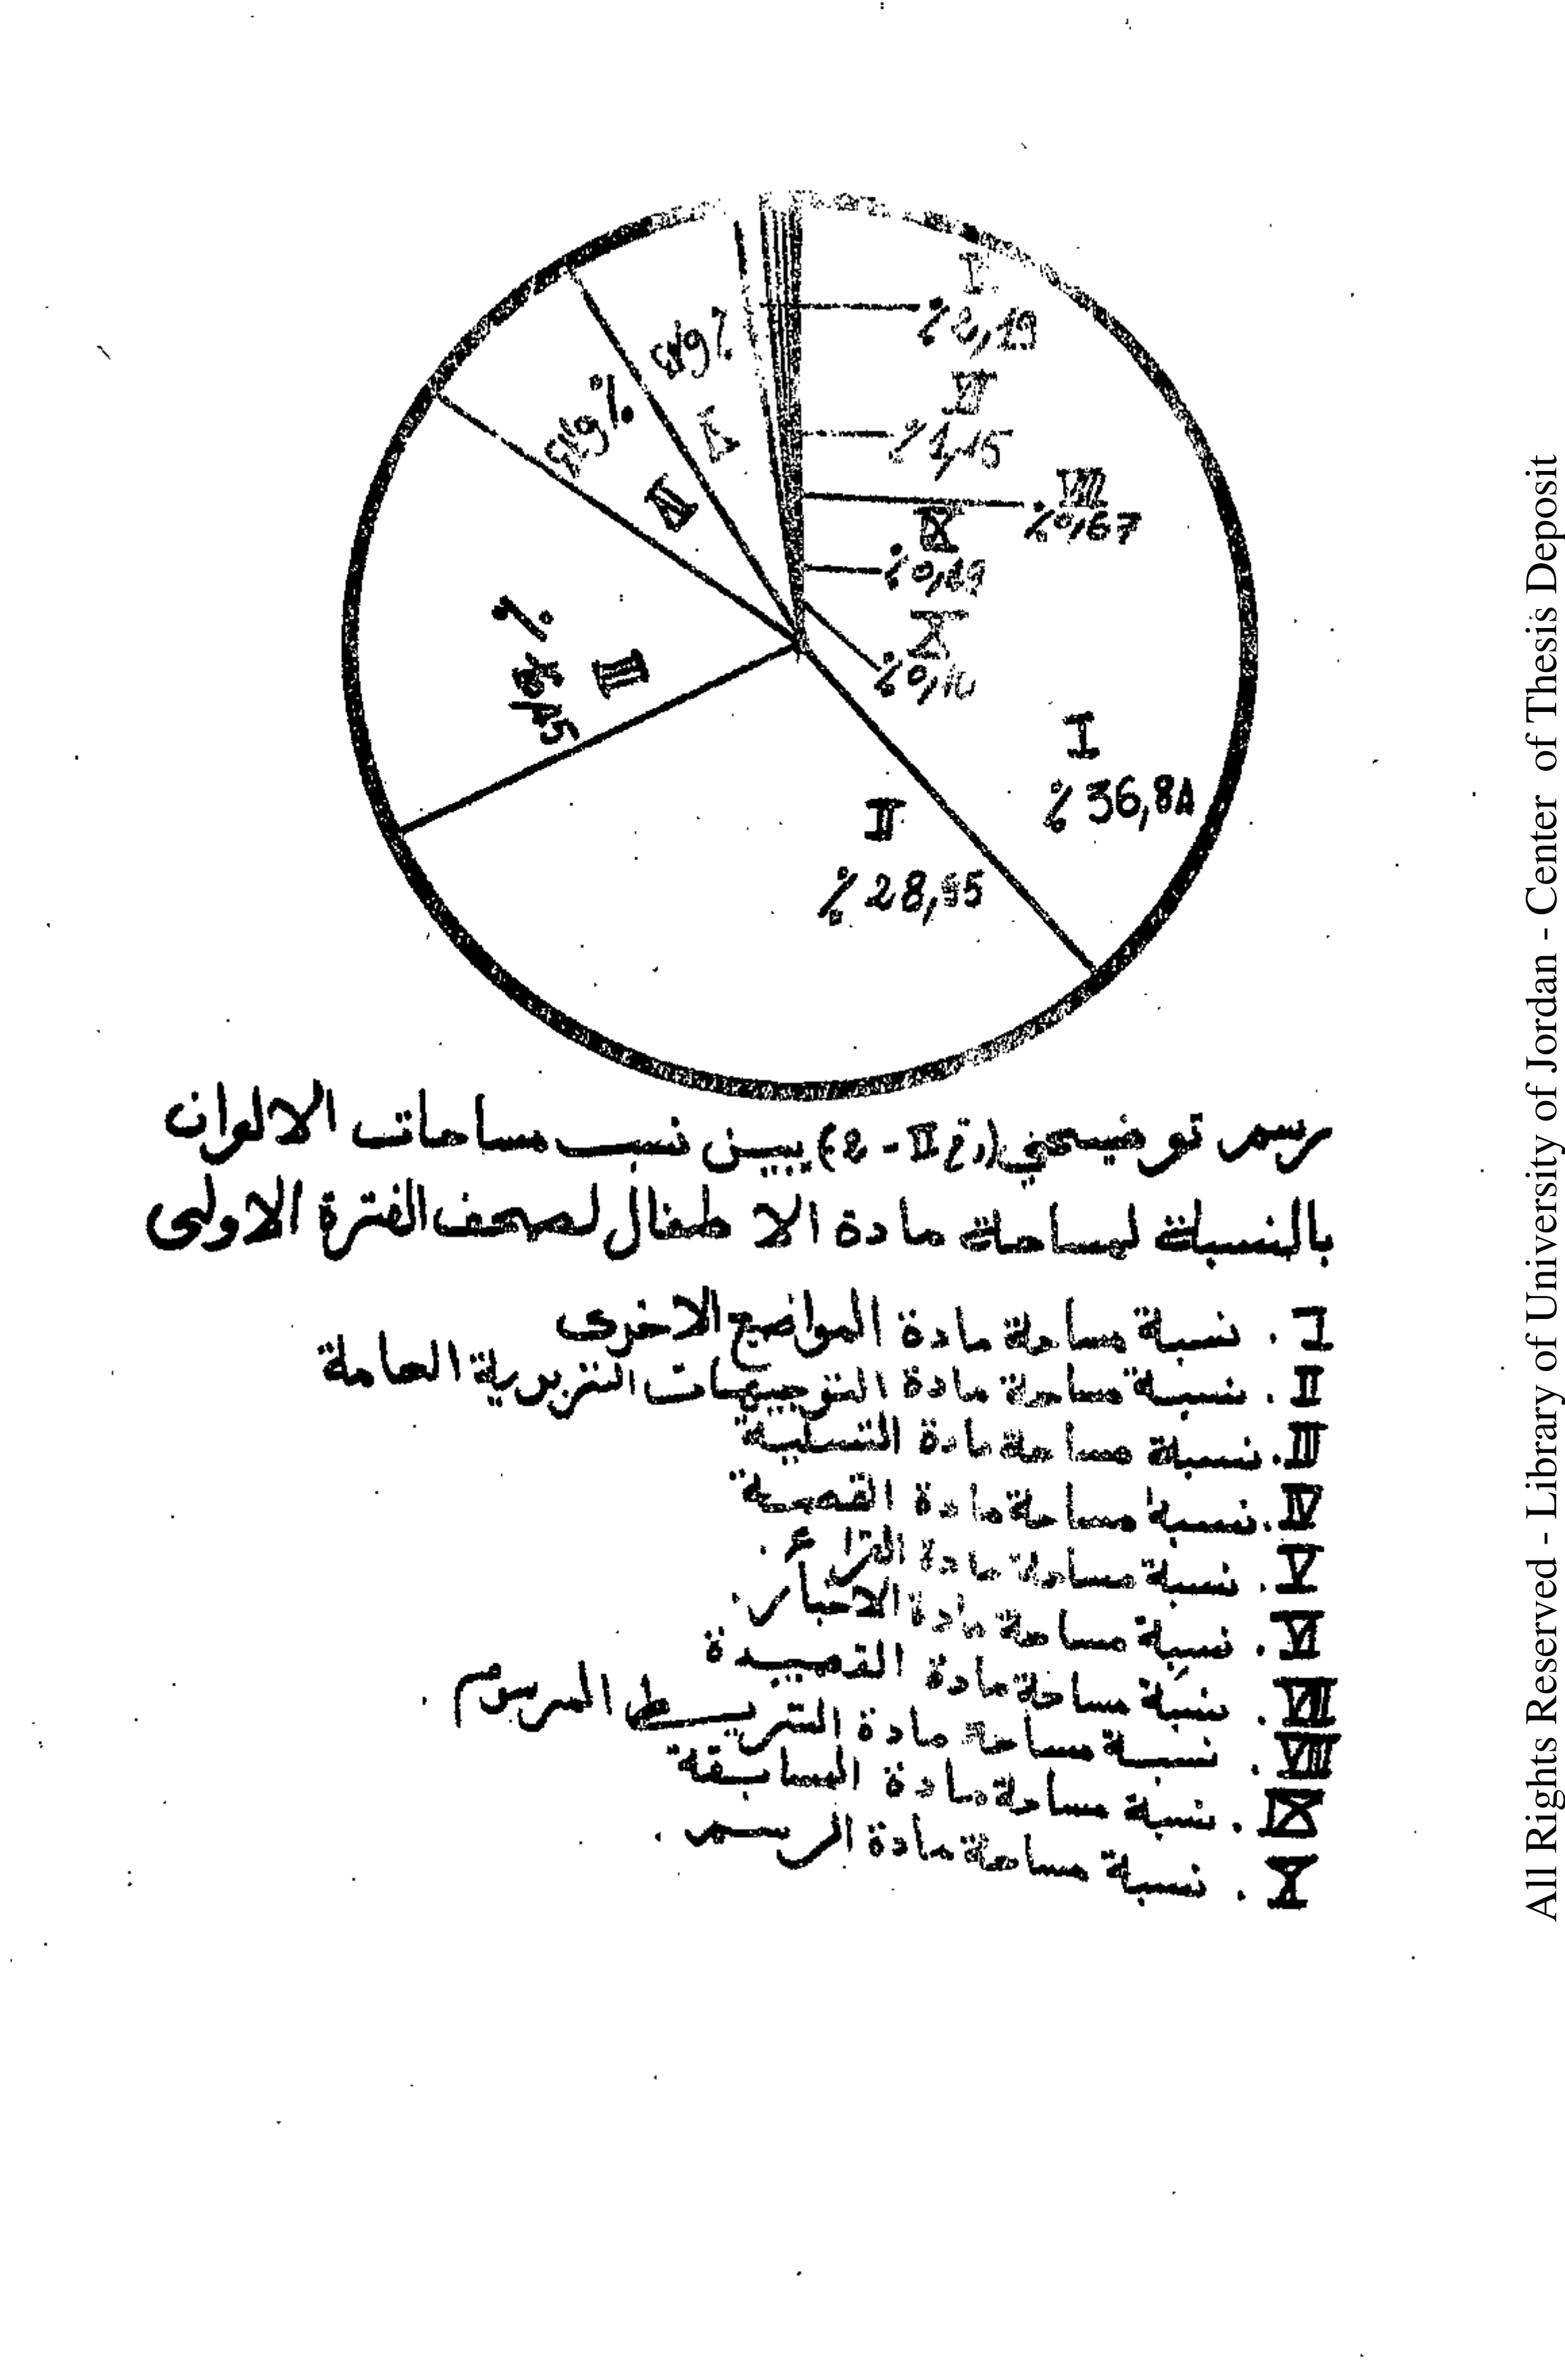 I
% 2,19
% 1,15
VIII
% 0,67
IX
X
I
% 36,8
II
% 28,
III
IV
V
رسم توضيحي (رقم II - 2) يبين نسب مساحات الالوان
بالنسبة لمساحة مادة الاطفال لصحف الفترة الاولى
I . نسبة مساحة مادة المواضيع الاخرى
II . نسبة مساحة مادة التوجيهات التربوية العامة
III . نسبة مساحة مادة التسلية
IV . نسبة مساحة مادة القصة
V . نسبة مساحة مادة
VI . نسبة مساحة مادة الاخبار .
VII . نسبة مساحة مادة القصيدة
VIII . نسبة مساحة مادة الشريط المرسوم .
IX . نسبة مساحة مادة المسابقة
X . نسبة مساحة مادة الرسم .
All Rights Reserved - Library of University of Jordan - Center of Thesis Deposit